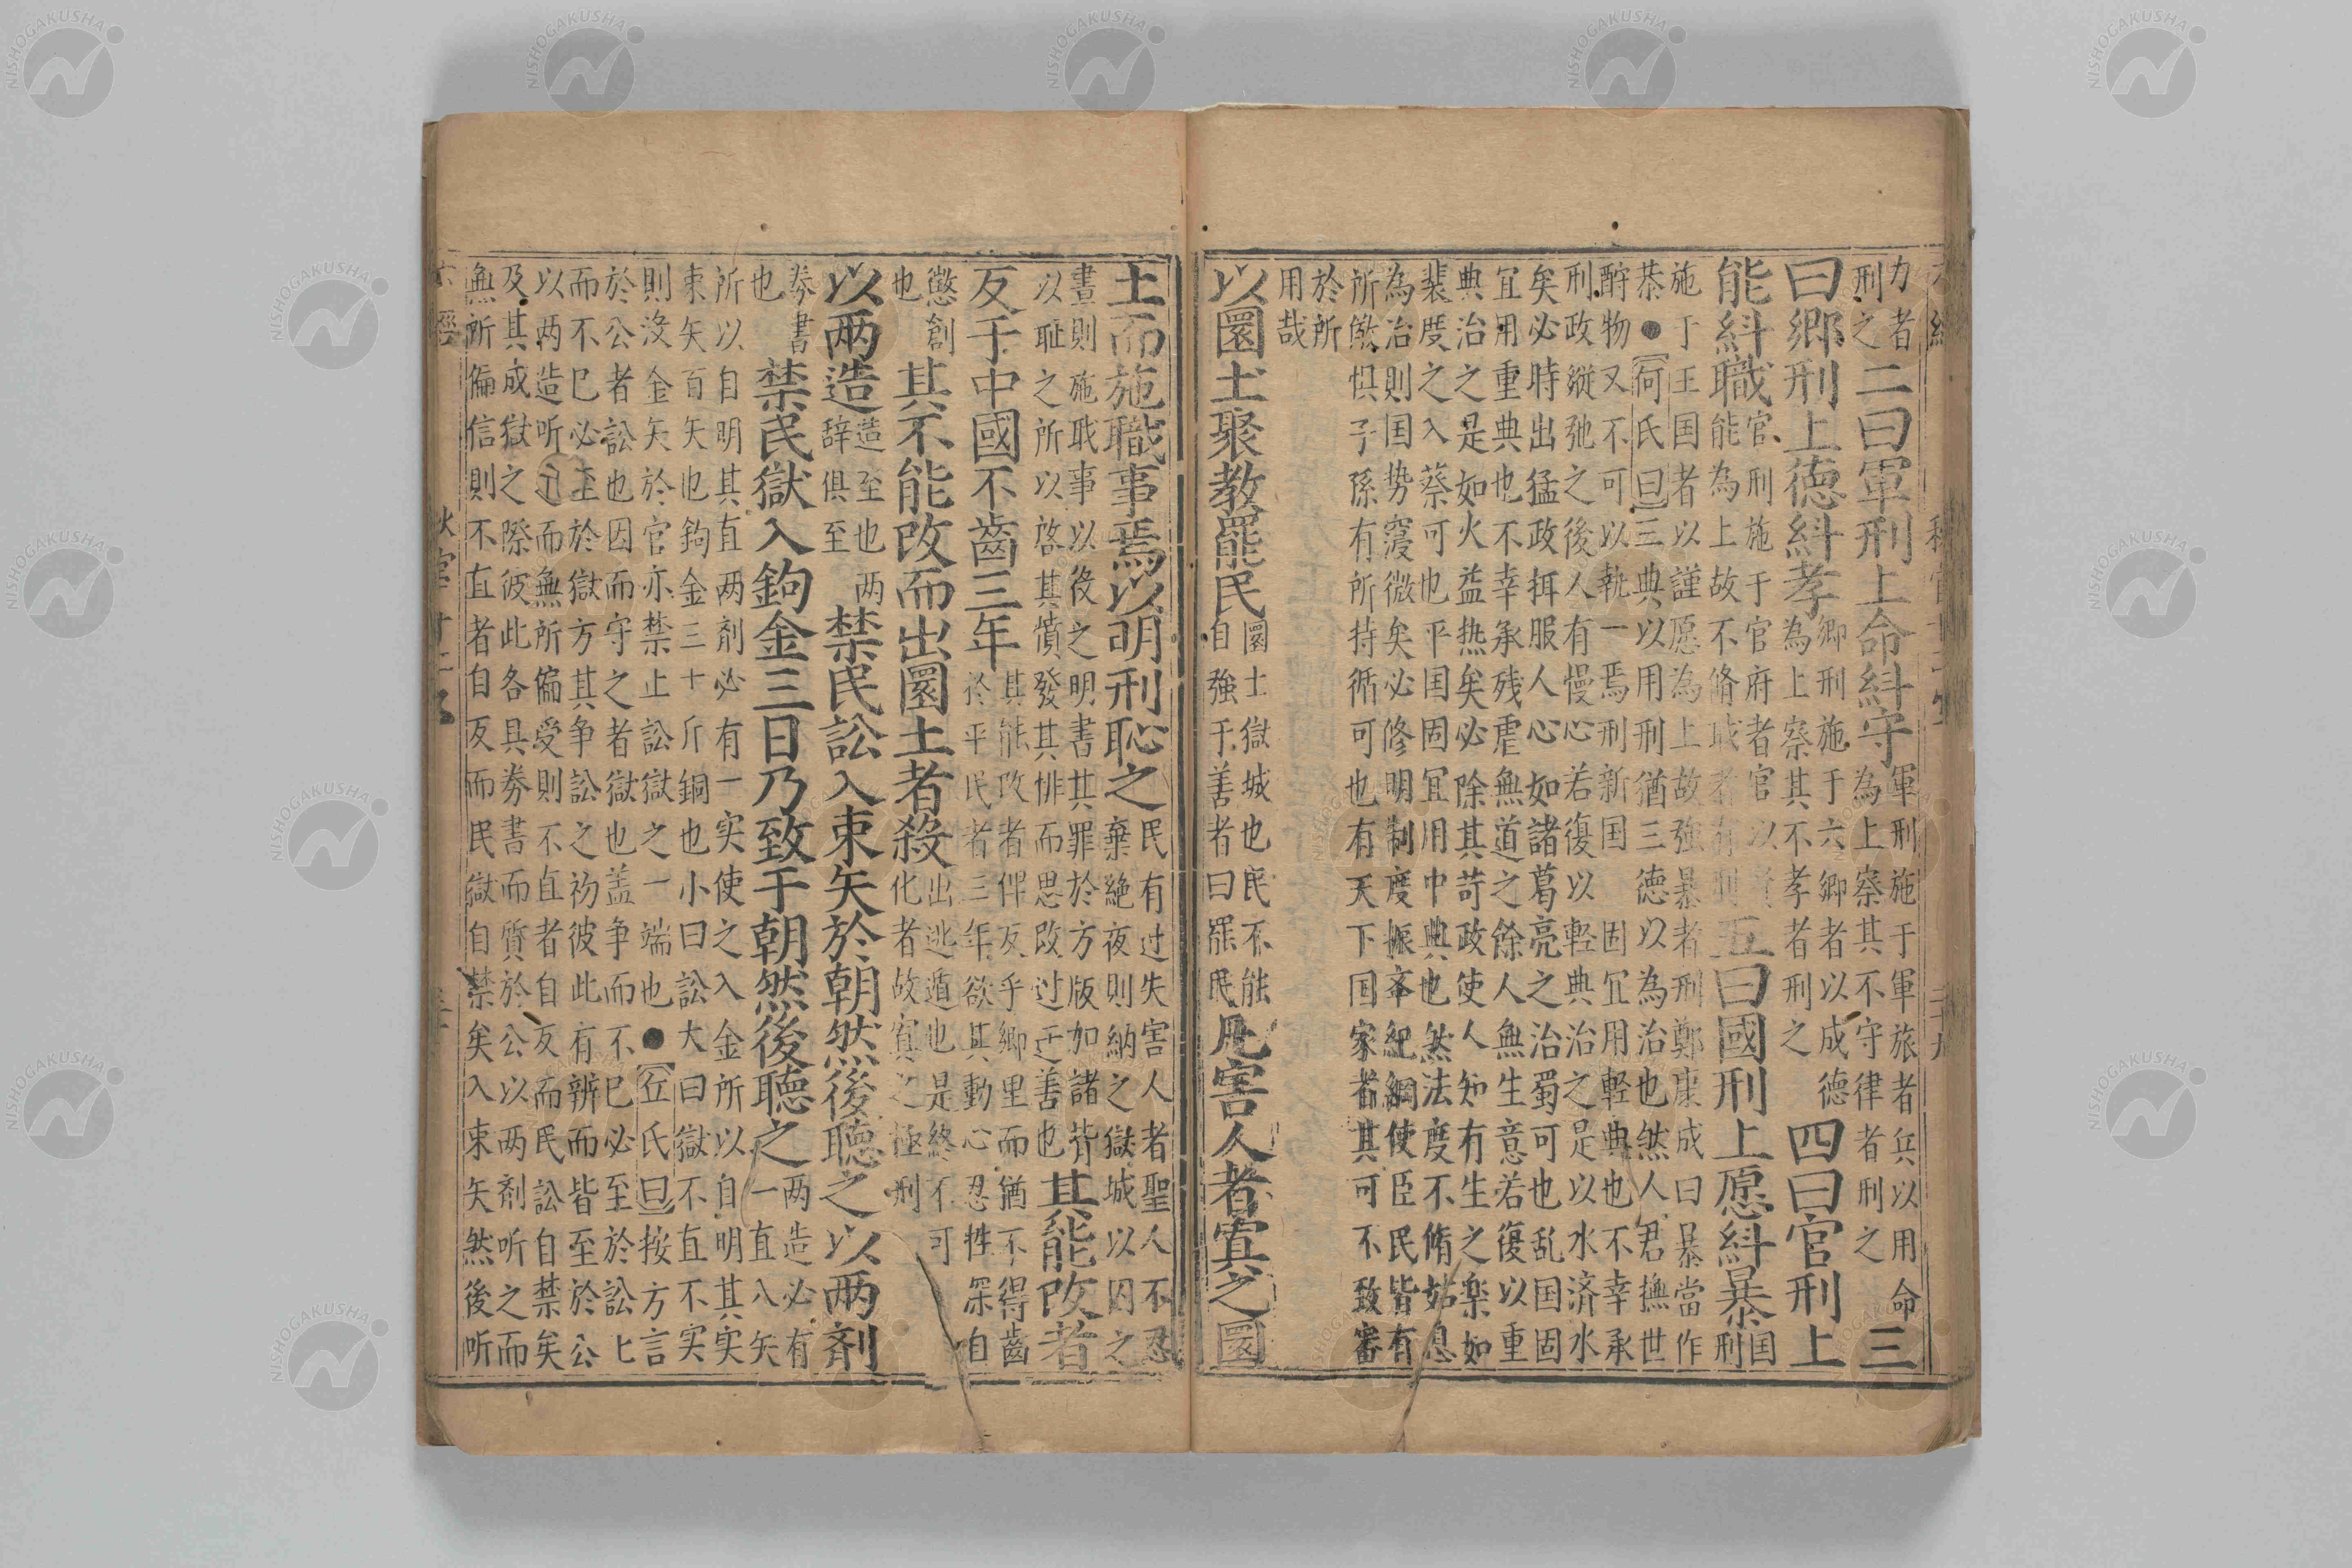 力者
刑之
二曰軍刑上命糾守
軍刑施于軍旅者兵以用命
為上察其不守律者刑之
三
曰鄉刑上德糾孝
鄉刑施于六鄉者以成德
為上察其不孝者刑之
四曰官刑上
能糾職
官刑施于官府者官以賢
能為上故不脩职者有刑
五曰國刑上愿糾暴
囯
刑
施于王国者以謹愿為上故強暴者刑鄭康成曰暴當作
恭●何氏曰三典以用刑猶三德以為治也然人君撫世
酧物又不可以執一焉刑新国固冝用軽典也不幸承
刑政縱弛之後人有慢心若復以輕典治之是以水済水
矣必時出猛政挕服人心如諸葛亮之治蜀可也乱国固
冝用重典也不幸承残虐無道之餘人無生意若復以重
典治之是如火益热矣必除其苛政使人知有生之楽如
裴度之入蔡可也平国固冝用中典也然法度不脩姑息
為治則国势寖微矣必修明制度振斉紀綱使臣民皆有
所儆惧子孫有所持循可也有天下国家者其可不致審
於所
用哉
以圜土聚教罷民
圜土獄城也民不能
自強于善者曰罷民
凡害人者寘之圜
土而施職事焉以明刑恥之
民有过失害人者聖人不忍
棄絶夜則納之獄城以囚之
晝則施职事以後之明書其罪於方版加諸背
以耻之所以啓其憤發其悱而思改过迁善也
其能改者
反于中國不齒三年
其能改者俾反乎鄉里而猶不得齒
於平民者三年欲其動心忍性深自
懲創
也
其不能改而出圜土者殺
出逃遁也是終不可
化者故寘之極刑
以两造
造至也两
辞俱至
禁民訟入束矢於朝然後聴之以两剤
劵書
也
禁民獄入鈞金三日乃致于朝然後聴之
两造必有
一直入矢
所以自明其直两剤必有一实使之入金所以自明其实
束矢百矢也鈞金三十斤銅也小曰訟大曰獄不直不实
則沒金矢於官亦禁止訟獄之一端也●丘氏曰按方言
於公者訟也因而守之者獄也盖争而不已必至於訟匕
而不已必至於獄方其争訟之初彼此有辨而皆至於公
以两造听之而無所偏受則不直者自反而民訟自禁矣
及其成獄之際彼此各具劵書而質於公以两剤听之而
無所偏信則不直者自反而民獄自禁矣入束矢然後听
NISHOGAKUSHA